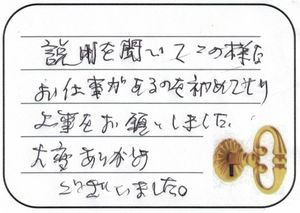 説明を聞いてこの様な
お仕事があるのを初めてしり
工事をお願いしました。
大変ありがとう
ございました。